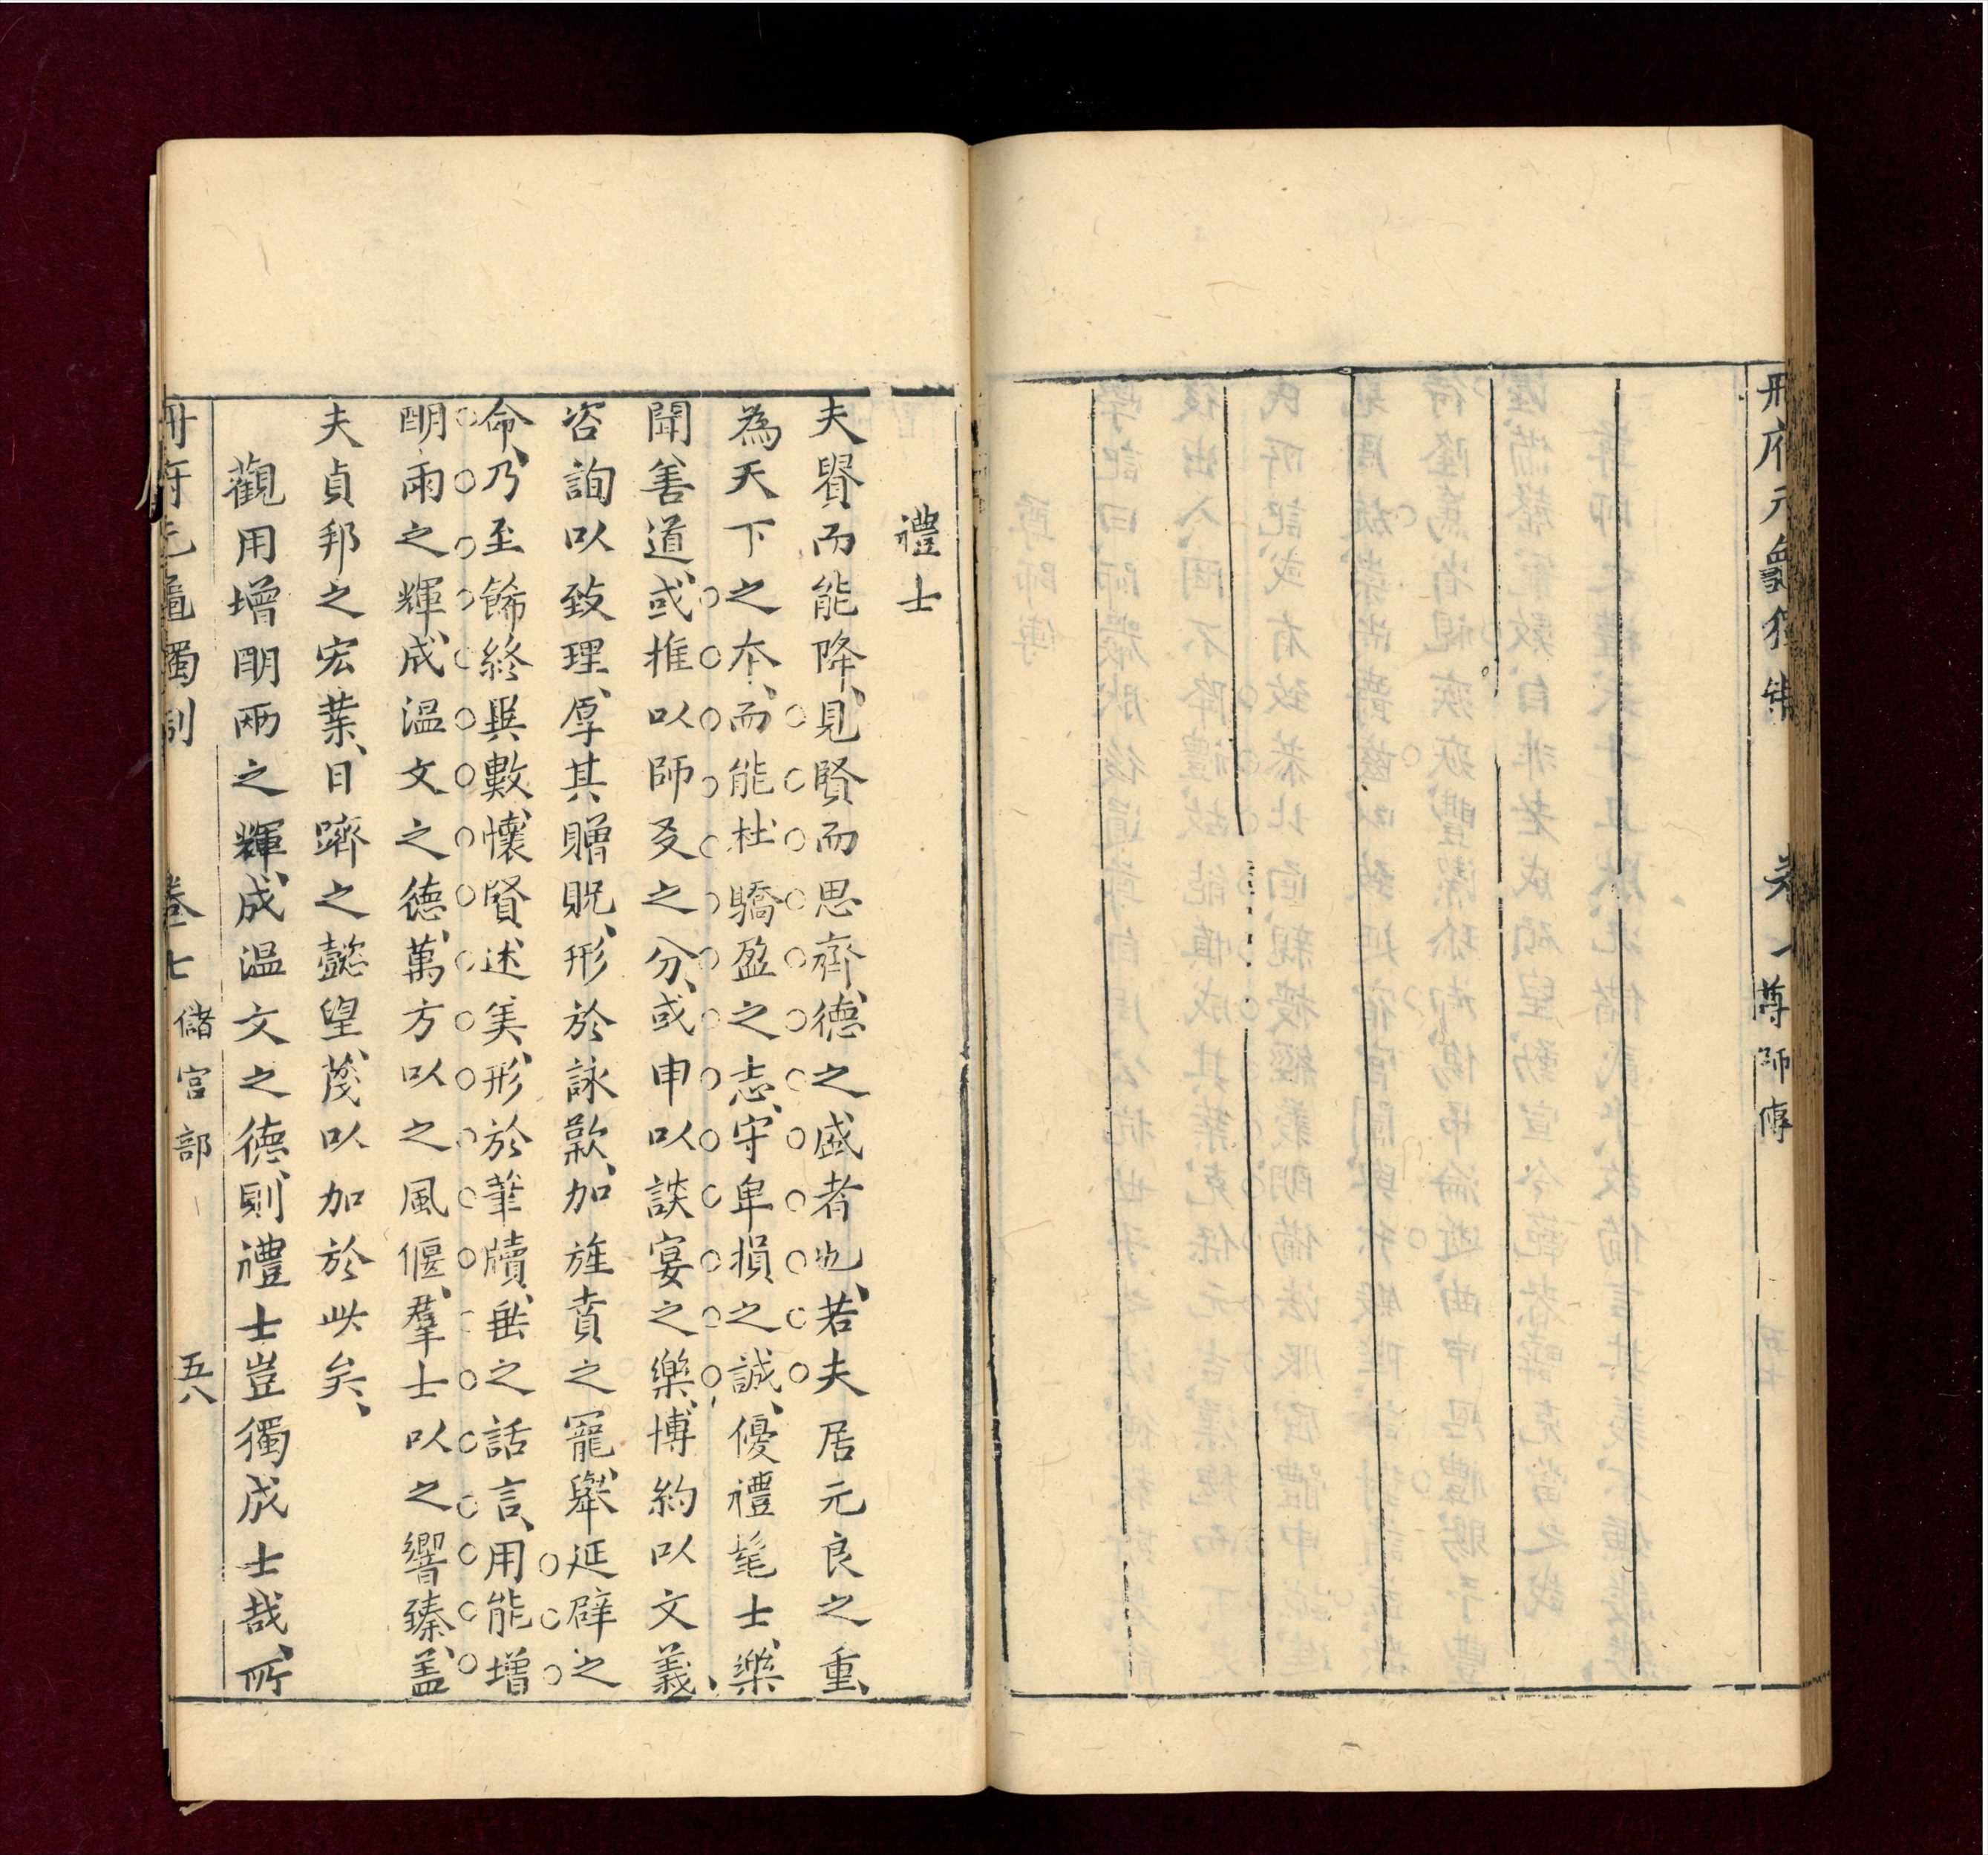 冊府元龜獨
尊師傅
禮士
夫賢而能降見賢而思齊德之盛者也若夫居元良之重
為天下之本而能杜驕盈之志守卑損之誠優禮髦士樂
聞善道或推以師友之分或申以談宴之樂博約以文義
咨詢以致理厚其贈貺形於詠歎加旌賁之寵舉延辟之
命乃至飾終異數懷賢述美形於筆牘垂之話言用能增
明兩之輝成溫文之德萬方以之風偃羣士以之響臻蓋
夫貞邦之宏業日躋之懿望茂以加於此矣
觀用增明兩之輝成溫文之德則禮士豈獨成士哉所
冊府元龜獨制
卷七
儲宮部
五八